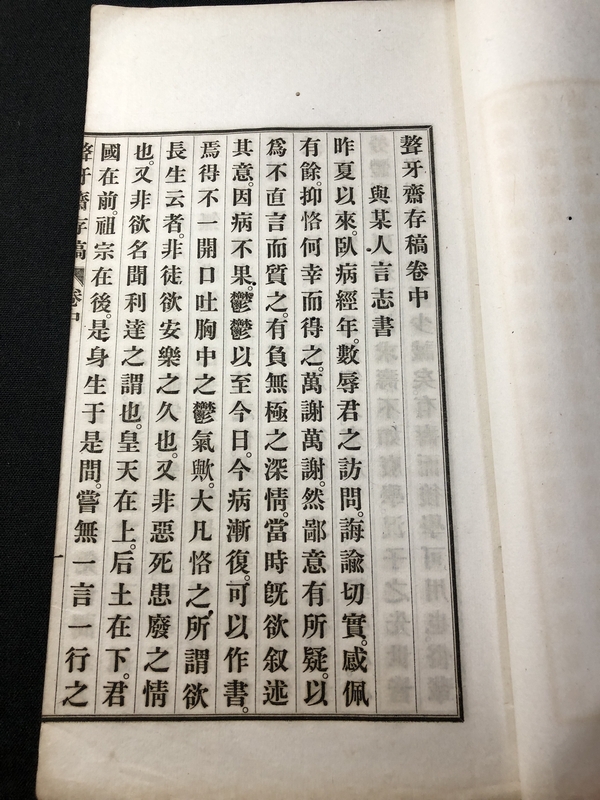 聱牙齋存稿卷中
與某人言志書
昨夏以來。臥病經年。數辱君之訪問。誨諭切實。感佩
有餘。抑恪何幸而得之。萬謝萬謝。然鄙意有所疑。以
爲不直言而質之。有負無極之深情。當時既欲叙述
其意。因病不果。鬱鬱以至今日。今病漸復。可以作書。
焉得不一開口吐胸中之鬱氣歟。大凡恪之所謂欲
長生云者。非徒欲安樂之久也。又非惡死患廢之情
也。又非欲名聞利達之謂也。皇天在上。后土在下。君
國在前。祖宗在後。是身生于是間。嘗無一言一行之
聱牙齋存稿 卷中 一